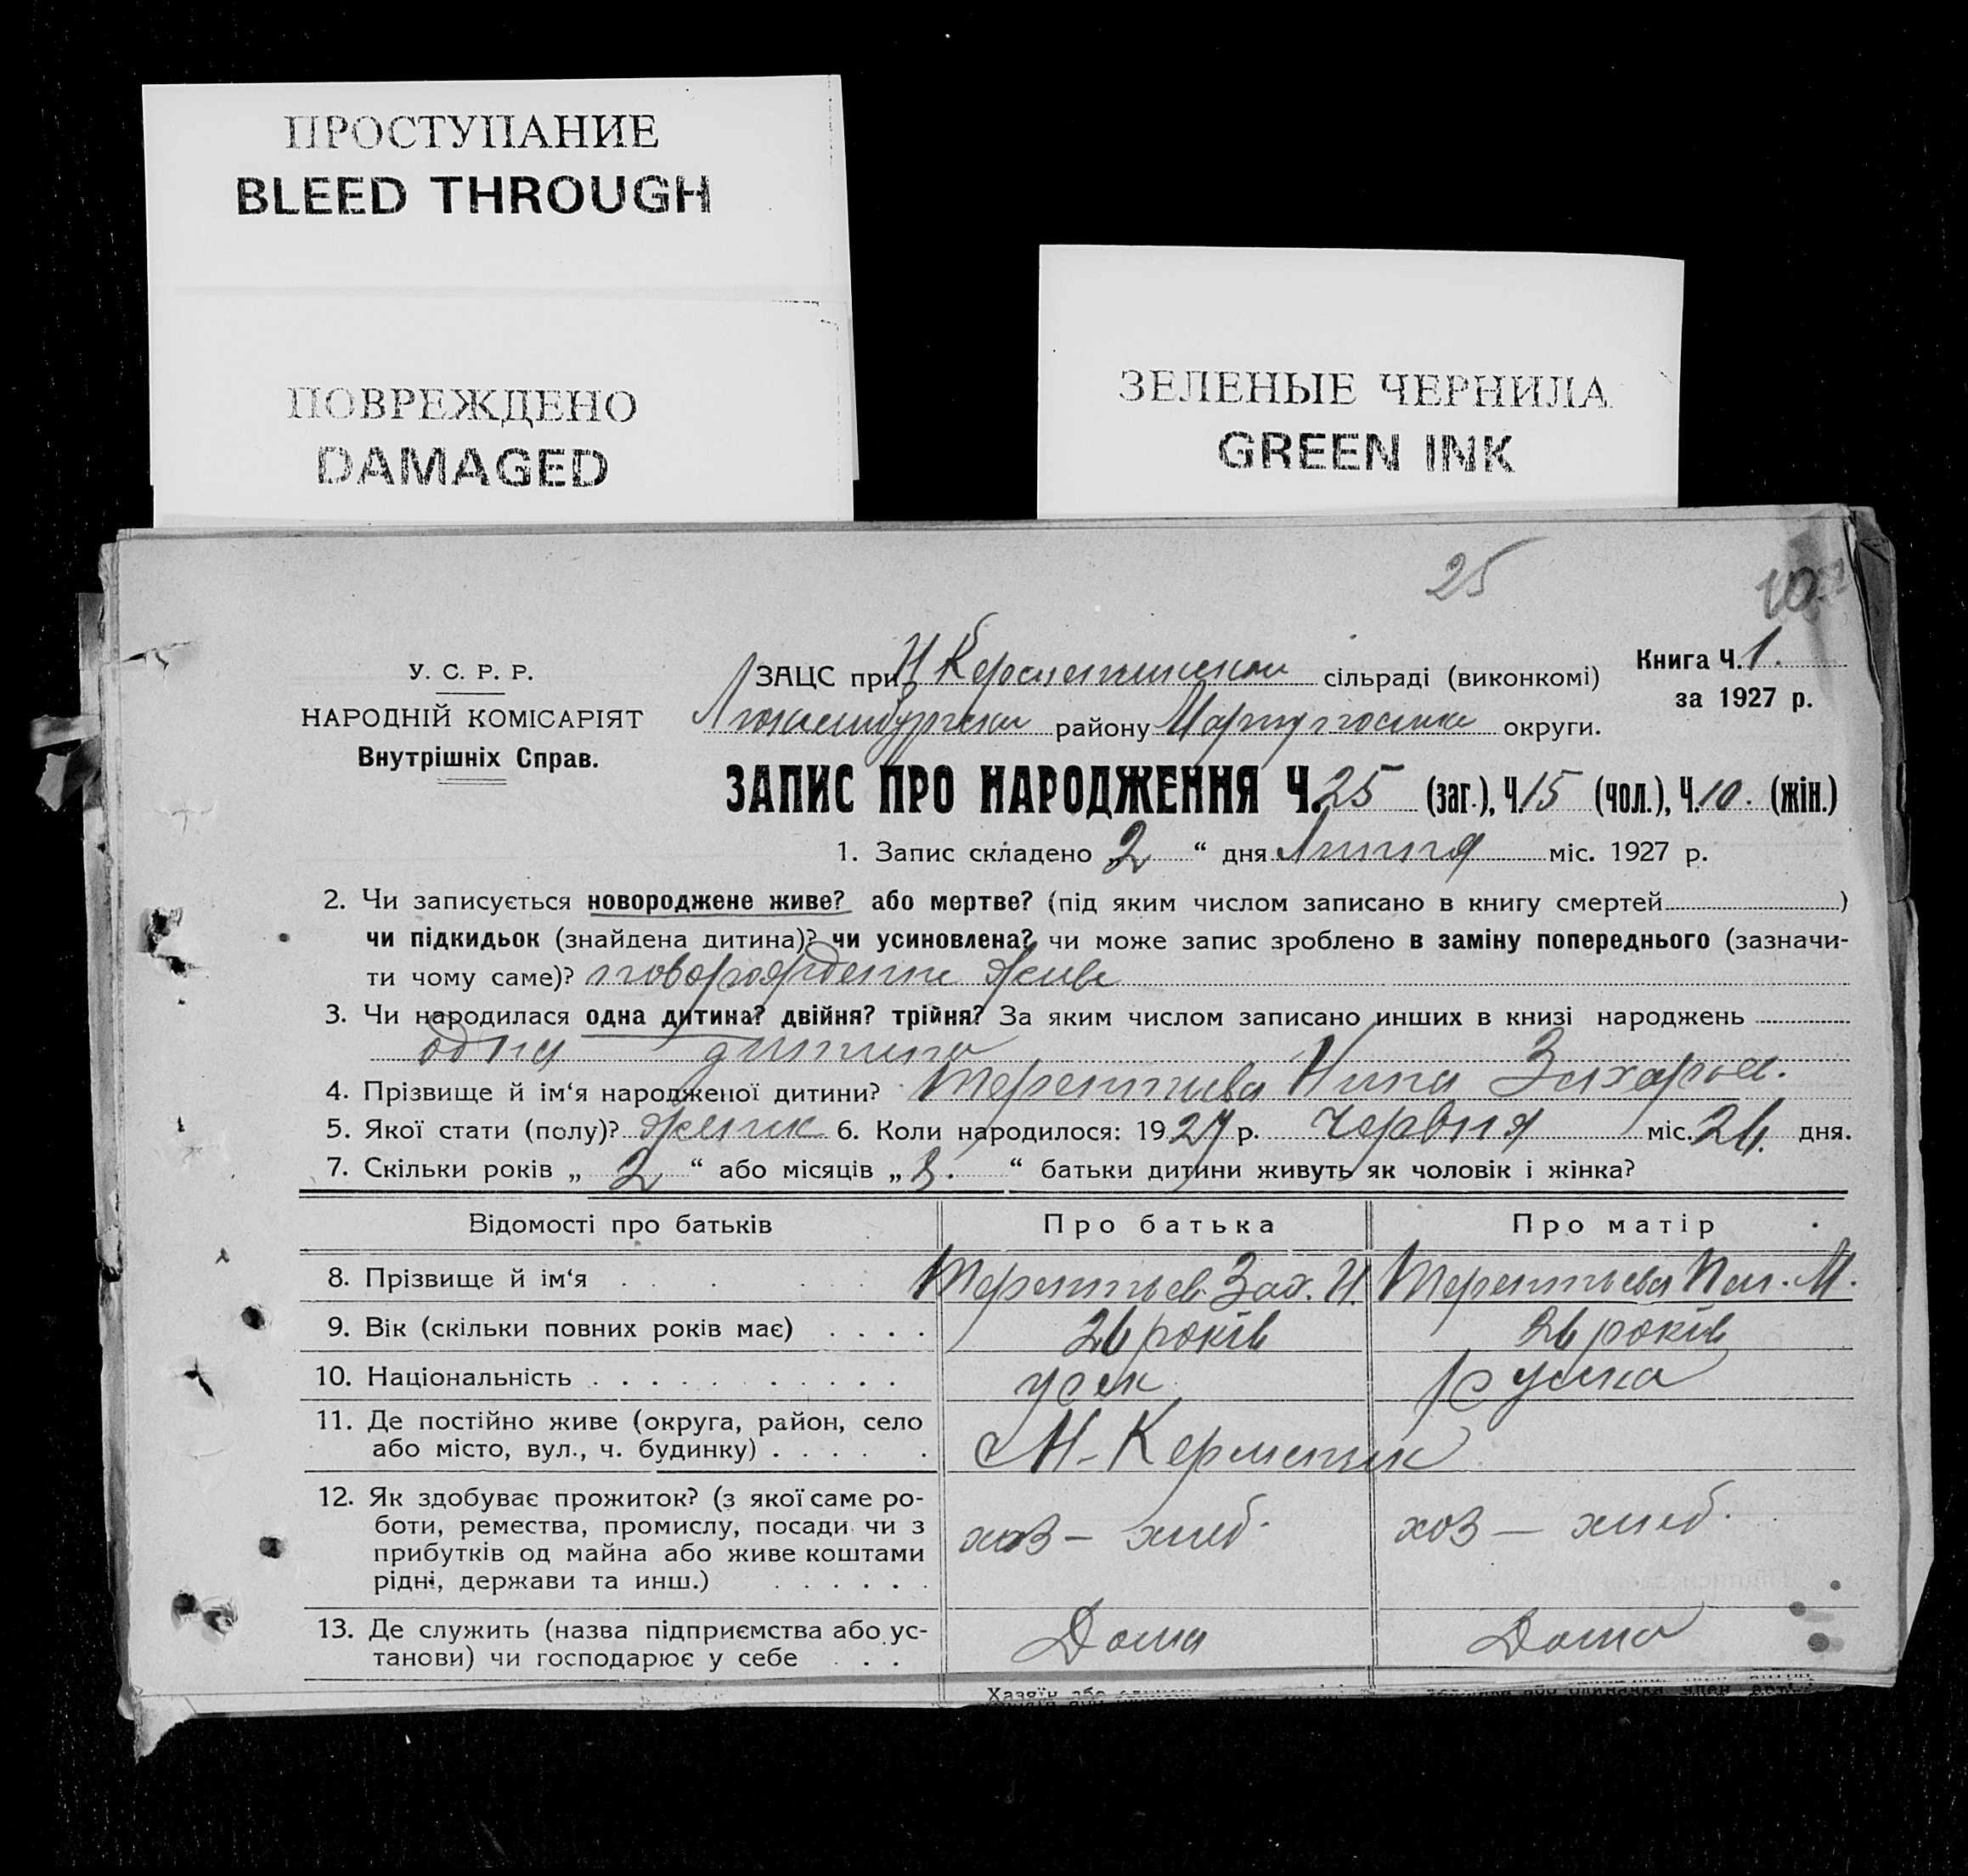 ПРОСТУПАНИЕ
BLEED THROUGH
ПОВРЕЖДЕНО
DAMAGED
ЗЕЛЕНЫЕ ЧЕРНИЛА
GREEN INK
25
У. С. Р. Р.
НАРОДНІЙ КОМІСАРІЯТ
Внутрішніх Справ.
ЗАЦС при Н Керменчикском сільраді (виконкомі)
Люксембургском району Маріупольска округи.
Книга Ч. 1.
за 1927 р.
ЗАПИС ПРО НАРОДЖЕННЯ Ч. 25 (заг.), Ч. 15 (чол.), Ч. 10. (жін.)
1. Запис складено „ 2 “ дня Липня міс. 1927 р.
2. Чи записується новороджене живе? або мертве? (під яким числом записано в книгу смертей )
чи підкидьок (знайдена дитина)? чи усиновлена? чи може запис зроблено в заміну попереднього (зазначи-
ти чому саме)? новорожденне живе
3. Чи народилася одна дитина? двійня? трійня? За яким числом записано инших в книзі народжень
одна дитина
4. Прізвище й ім‘я народженої дитини? Терентиева Нина Захарьев.
5. Якої стати (полу)? 6. Коли народилося: 1927 р. Червня міс. 26. дня.
7. Скільки років „ 2 “ або місяців „ 3. “ батьки дитини живуть як чоловік і жінка?
Відомості про батьків Про батька Про матір
8. Прізвище й ім‘я Терентьев Зах. И. Терентьева Пел. М.
9. Вік (скільки повних років має) 26 років 26 років
10. Національність грек
11. Де постійно живе (округа, район, село
або місто, вул., ч. будинку) Н-Керменчик
12. Як здобуває прожиток? (з якої саме ро-
боти, ремества, промислу, посади чи з
прибутків од майна або живе коштами
рідні, держави та инш.)
хоз — хлеб. хоз — хлеб.
13. Де служить (назва підприємства або ус-
танови) чи господарює у себе
Дома Дома